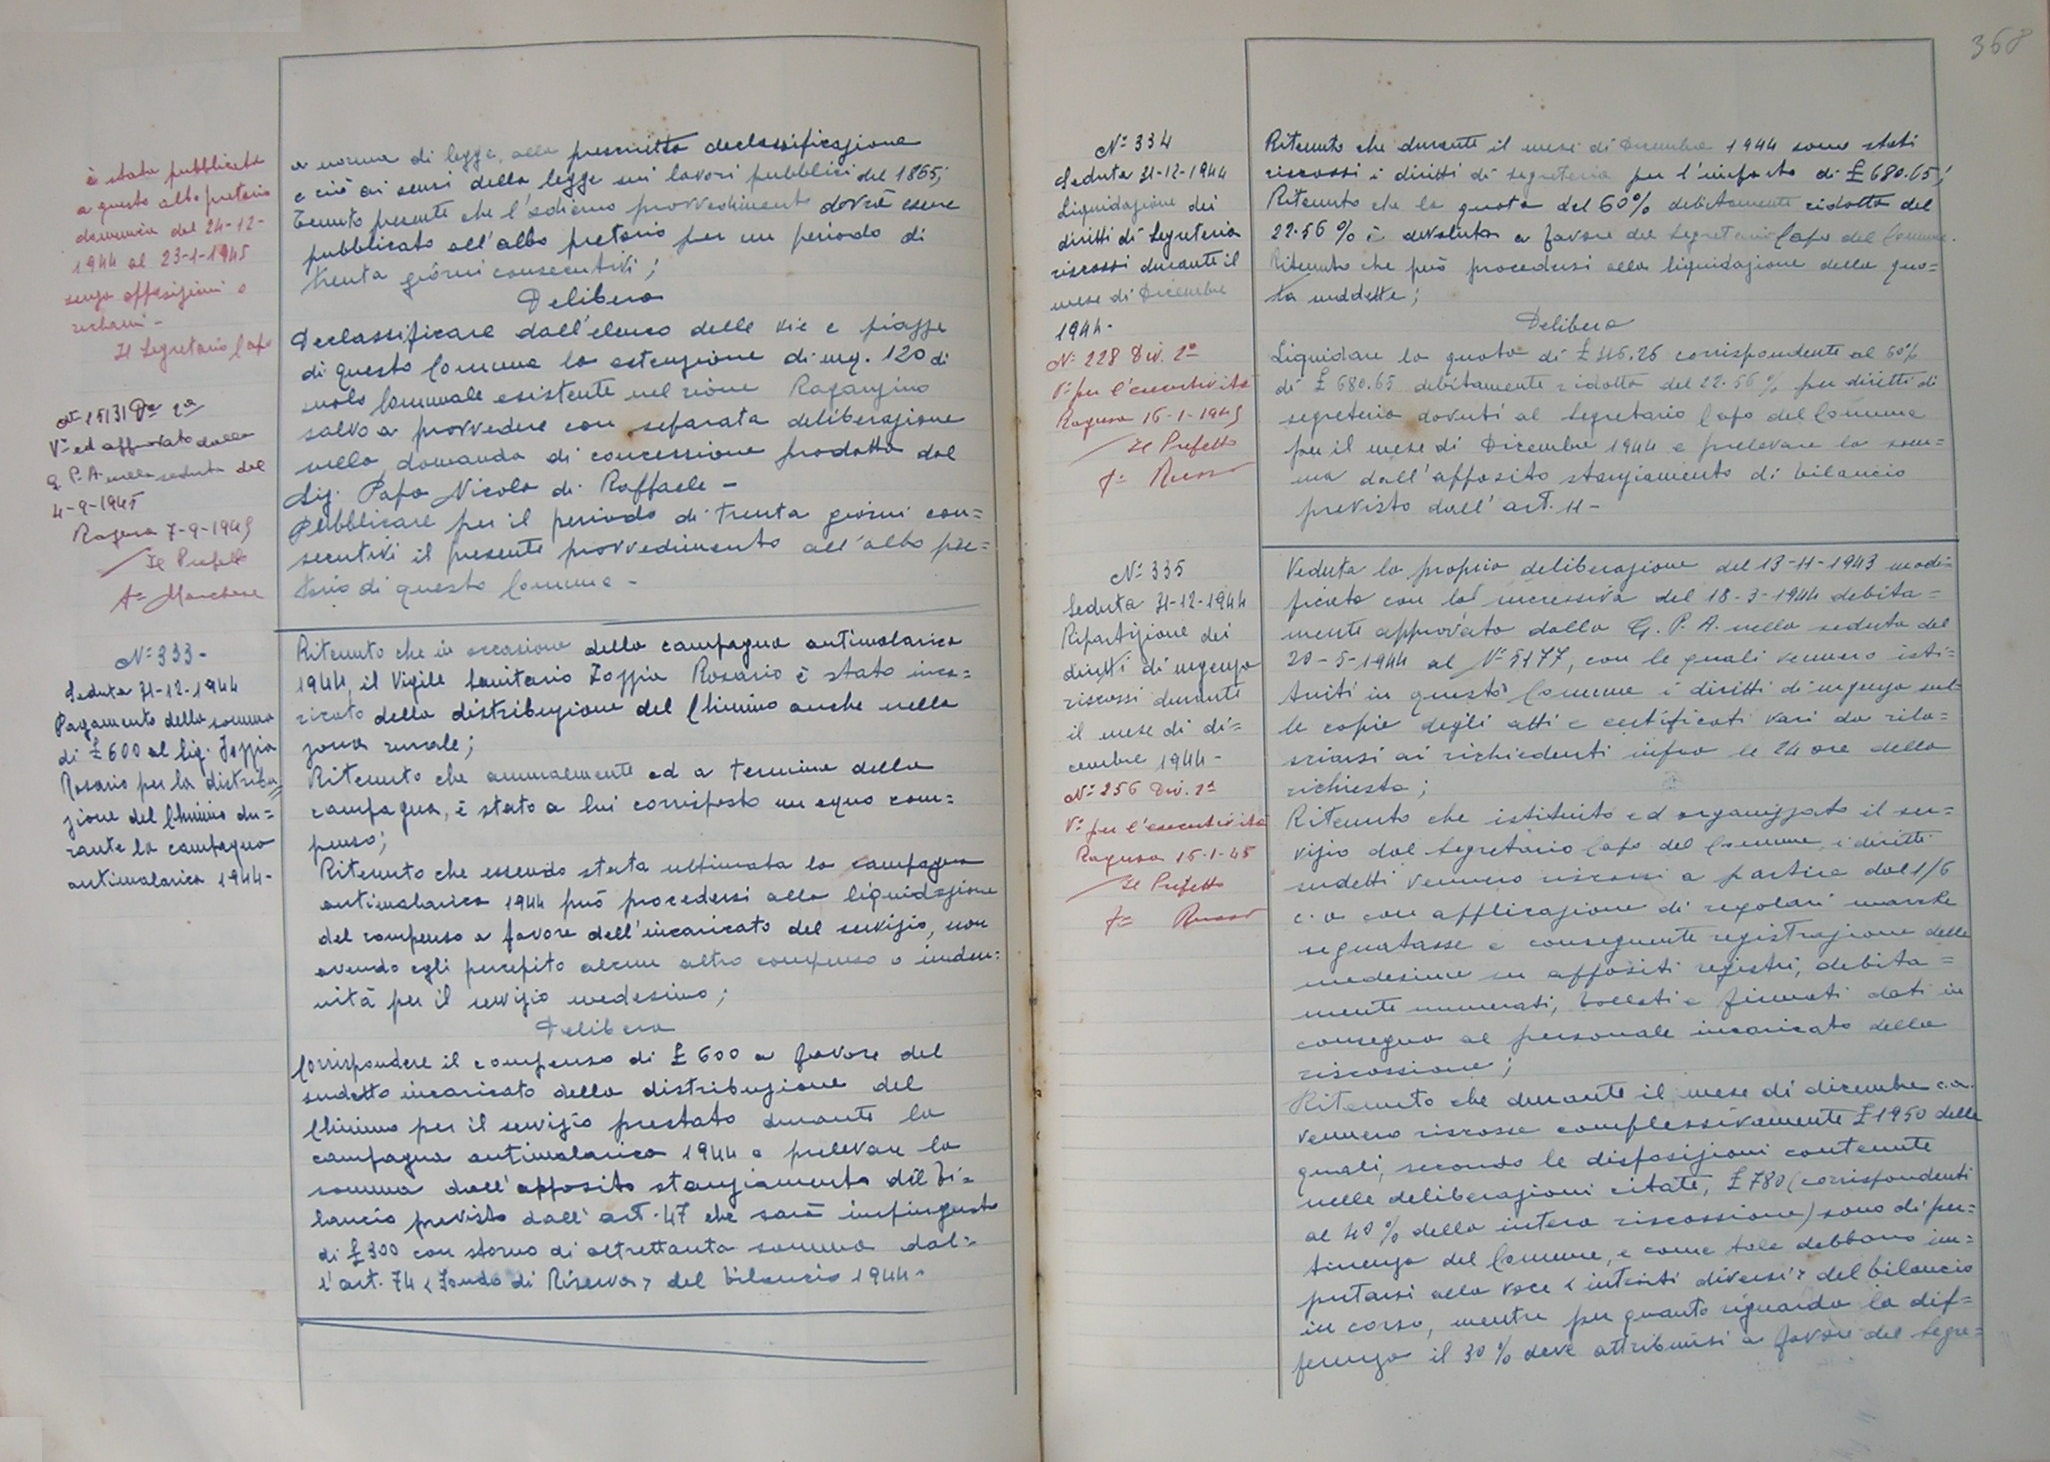 è stata pubblicata
a questo albo pretorio
domenica del 24-12-
1944 al 23-1-1945
senza opposizioni o
reclami -
Il Segretario Capo
N° 15131 Div. 2ª
V° ed approvato dalla
G. P. A. nella seduta del
4-9-1945
Ragusa 7-9-1945
Il Prefetto
f°
a norma di legge, alla prescritta declassificazione
e ciò ai sensi della legge sui lavori pubblici del 1865;
Tenuto presente che l'odierno provvedimento dovrà essere
pubblicato all'albo pretorio per un periodo di
trenta giorni consecutivi;
Delibera
Declassificare dall'elenco delle vie e piazze
di questo Comune la estenzione di mq. 120 di
suolo Comunale esistente nel rione
salvo a provvedere con separata deliberazione
sulla domanda di concessione prodotta dal
Sig. Papa Nicola di Raffaele -
Pubblicare per il periodo di trenta giorni con=
secutivi il presente provvedimento all'albo pre=
torio di questo Comune -
N° 333 -
Seduta 31-12-1944
Pagamento della somma
di £ 600 al Sig. Zoppia
Rosario per la distribu=
zione del Chinino du=
rante la campagna
antimalarica 1944 -
Ritenuto che in occasione della campagna antimalarica
1944, il Vigile Sanitario Zoppia Rosario è stato inca=
ricato della distribuzione del Chinino anche nella
zona rurale;
Ritenuto che annualmente ed a termine della
campagna, è stato a lui corrisposto un equo com=
penso;
Ritenuto che essendo stata ultimata la campagna
antimalarica 1944 può procedersi alla liquidazione
del compenso a favore dell'incaricato del servizio, non
avendo egli percepito alcun altro compenso o inden=
nità per il servizio medesimo;
Delibera
Corrispondere il compenso di £ 600 a favore del
sudetto incaricato della distribuzione del
Chinino per il servizio prestato durante la
campagna antimalarica 1944 e prelevare la
somma dall'apposito stanziamento del bi=
lancio previsto dall'art. 47 che sarà impinguato
di £ 300 con storno di altrettanta somma dal=
l'art. 74 "Fondo di Riserva" del bilancio 1944 -
368
N° 334
Seduta 31-12-1944
Liquidazione dei
diritti di Segreteria
riscossi durante il
mese di Dicembre
1944 -
N° 228 Div. 2ª
V° per l'esecutività
Ragusa 16-1-1945
Il Prefetto
f° Russo
Ritenuto che durante il mese di Dicembre 1944 sono stati
riscossi i diritti di segreteria per l'importo di £ 680.65;
Ritenuto che la quota del 60% debitamente ridotta del
22.56% è devoluta a favore del Segretario Capo del Comune.
Ritenuto che può procedersi alla liquidazione della quo=
ta suddetta;
Delibera
Liquidare la quota di £ 316.26 corrispondente al 60%
di £ 680.65 debitamente ridotta del 22.56% per diritti di
segreteria dovuti al Segretario Capo del Comune
per il mese di Dicembre 1944 e prelevare la som=
ma dall'apposito stanziamento di bilancio
previsto dall'art. 11 -
N° 335
Seduta 31-12-1944
Ripartizione dei
diritti di urgenza
riscossi durante
il mese di di=
cembre 1944 -
N° 256 Div. 2ª
V° per l'esecutività
Ragusa 16-1-45
Il Prefetto
f° Russo
Veduta la propria deliberazione del 13-11-1943 modi=
ficata con la successiva del 18-3-1944 debita=
mente approvata dalla G. P. A. nella seduta del
20-5-1944 al N° 5177, con le quali vennero isti=
tuiti in questo Comune i diritti di urgenza sul=
le copie degli atti e certificati vari da rila=
sciarsi ai richiedenti infra le 24 ore della
richiesta;
Ritenuto che istituito ed organizzato il ser=
vizio dal Segretario Capo del Comune, i diritti
sudetti vennero riscossi a partire dal 1/6
c. a con applicazione di regolari marche
segnatasse e conseguente registrazione delle
medesime su appositi registri, debita=
mente numerati, bollati e firmati dati in
consegna al personale incaricato della
riscossione;
Ritenuto che durante il mese di dicembre c.a.
vennero riscosse complessivamente £ 1950 delle
quali, secondo le disposizioni contenute
nelle deliberazioni citate, £ 780 (corrispondenti
al 40% della intera riscossione) sono di per=
tinenza del Comune, e come tale debbono im=
putarsi alla voce "introiti diversi" del bilancio
in corso, mentre per quanto riguarda la dif=
ferenza il 30% deve attribuirsi a favore del Segre=